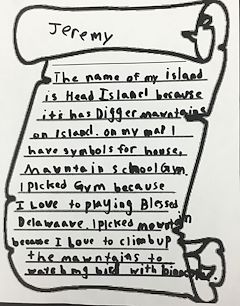 Jeremy
The name of my island
is Head Island because
it's has Digger mauntains
on Island. on my map I
have symbols for house,
Mauntain school Gym
I picked Gym because
I Love to playing Blessed
Delawave. I picked mountain
because I Love to climb up
the mawntains to
watch my bird with binoculars